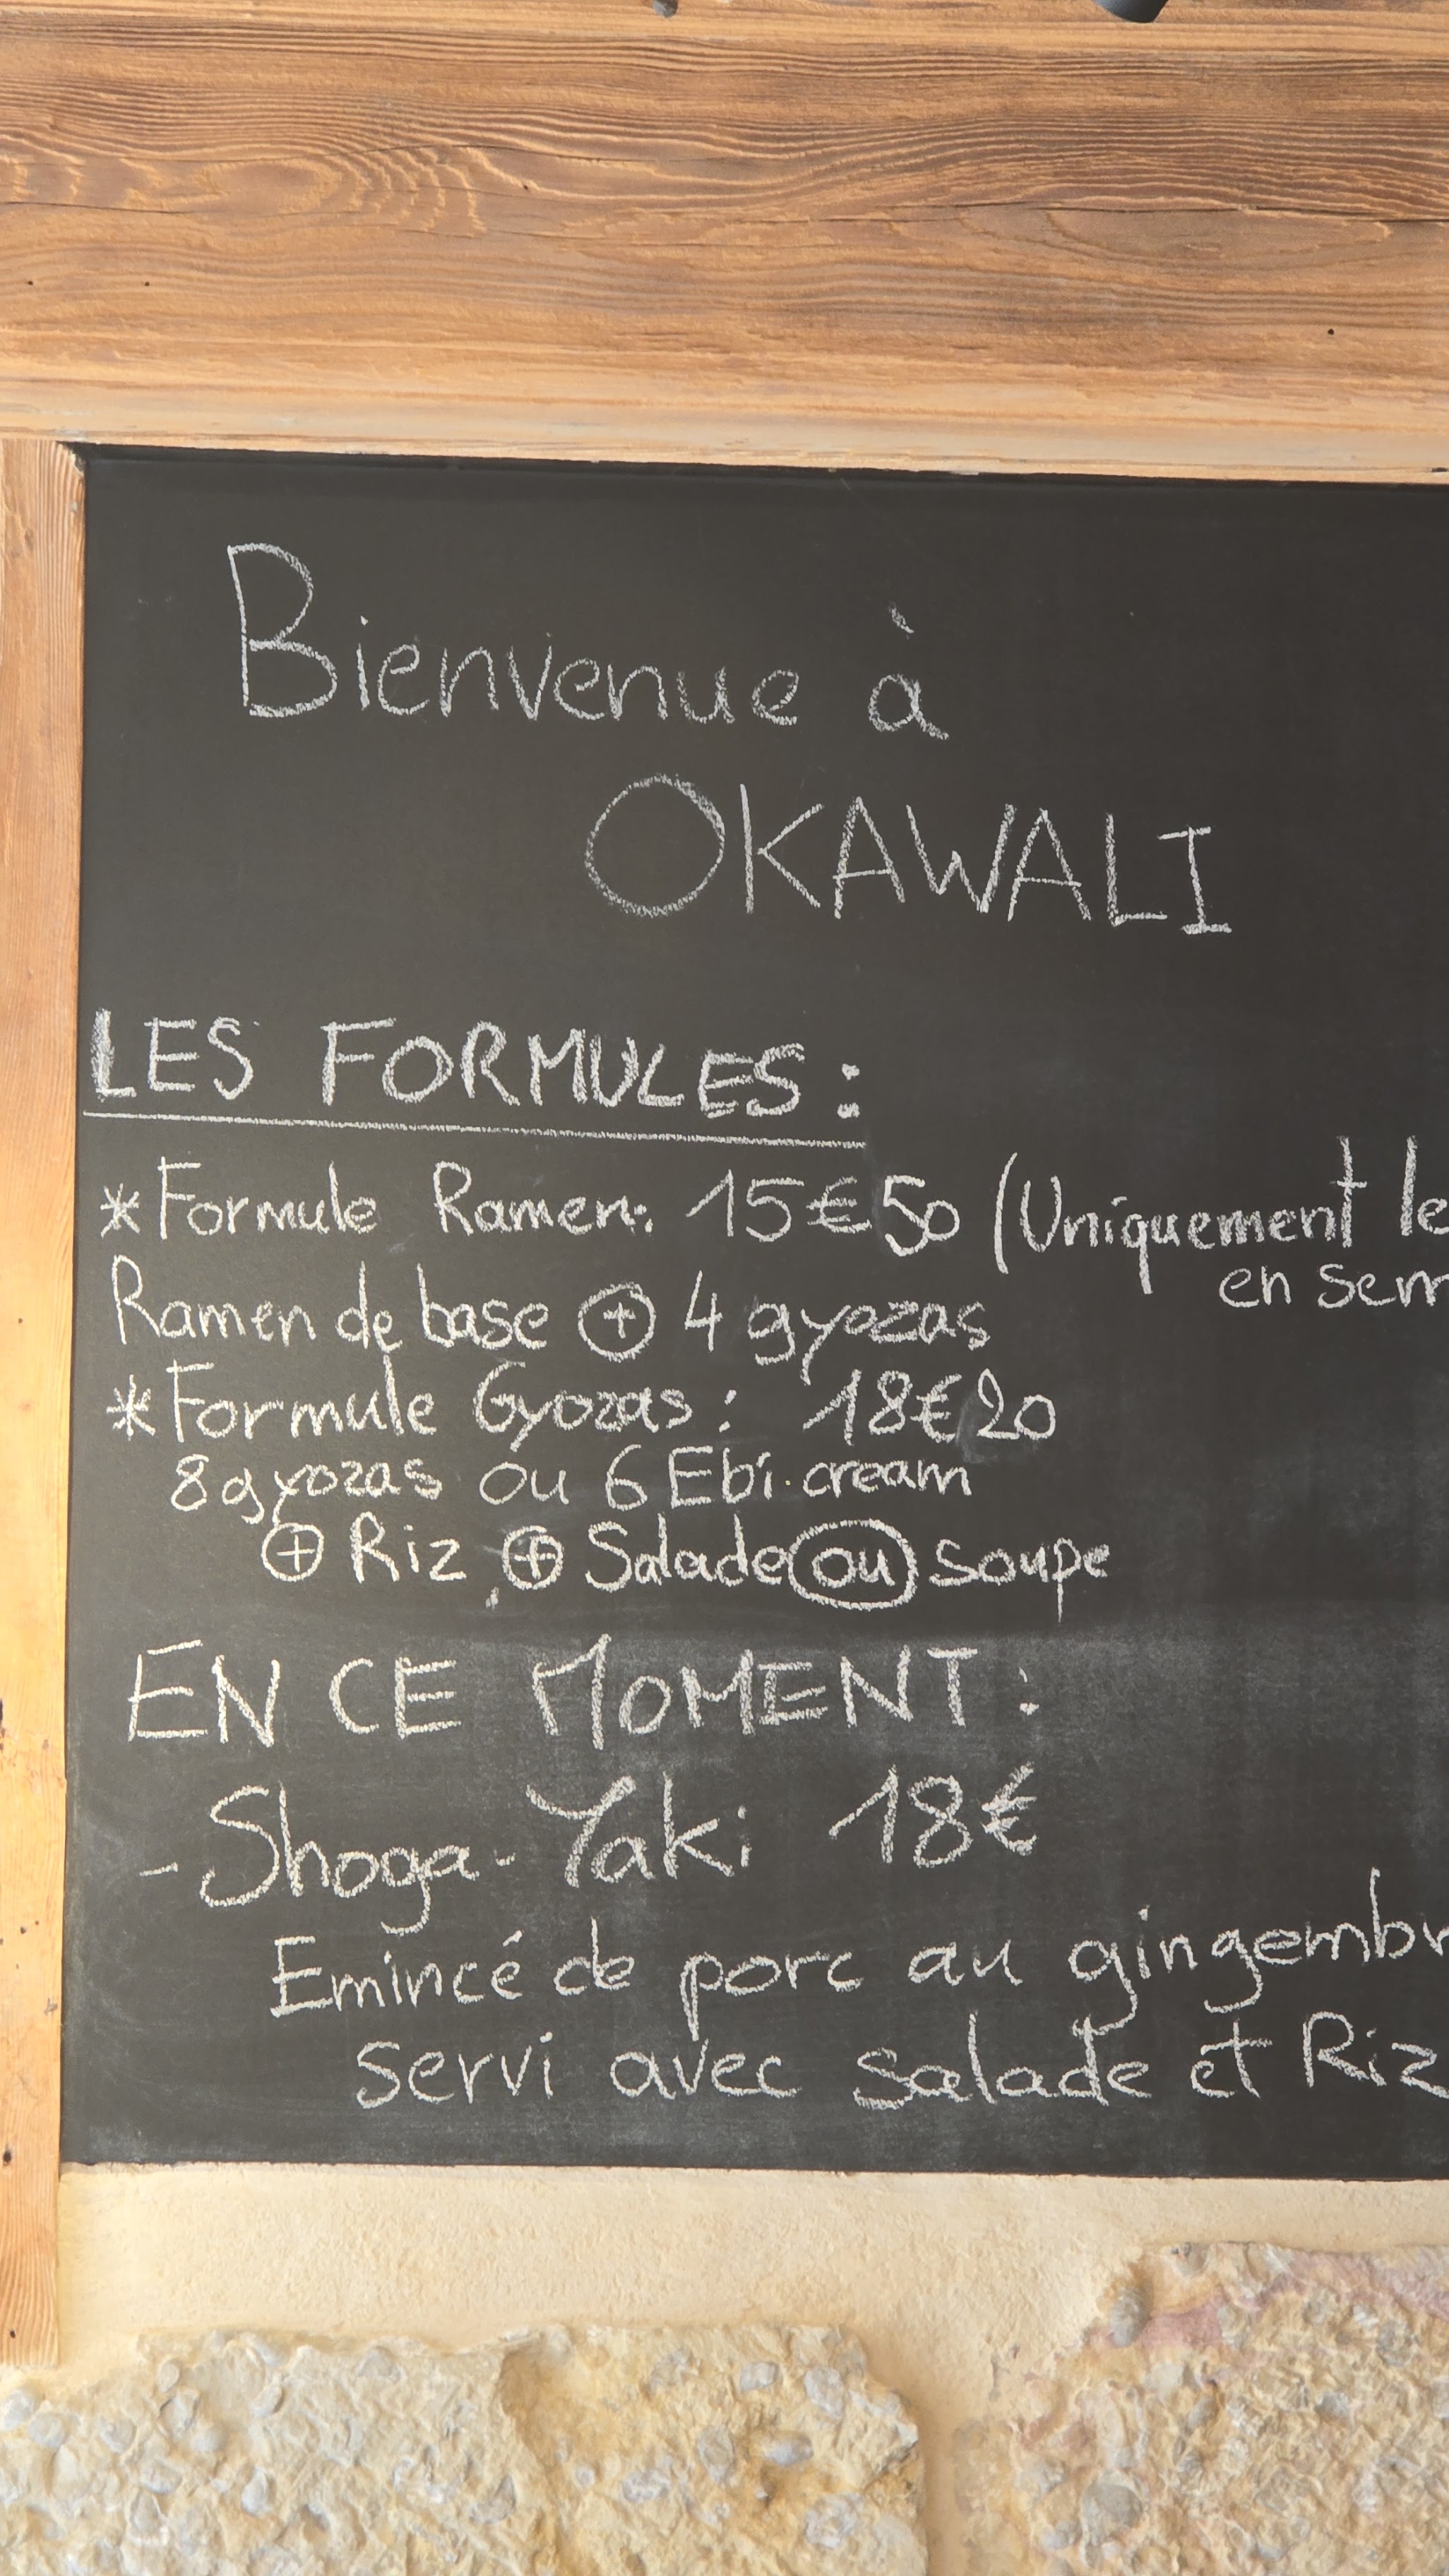 Bienvenue à
OKAWALI
LES FORMULES :
*Formule Ramen: 15€50 (Uniquement le
en sem
Ramen de base + 4 gyozas
*Formule Gyozas : 18€20
8 gyozas ou 6 Ebi cream
+ Riz + Salade ou soupe
EN CE MOMENT :
- Shoga-Yaki 18€
Emincé de porc au gingembr
servi avec salade et Riz